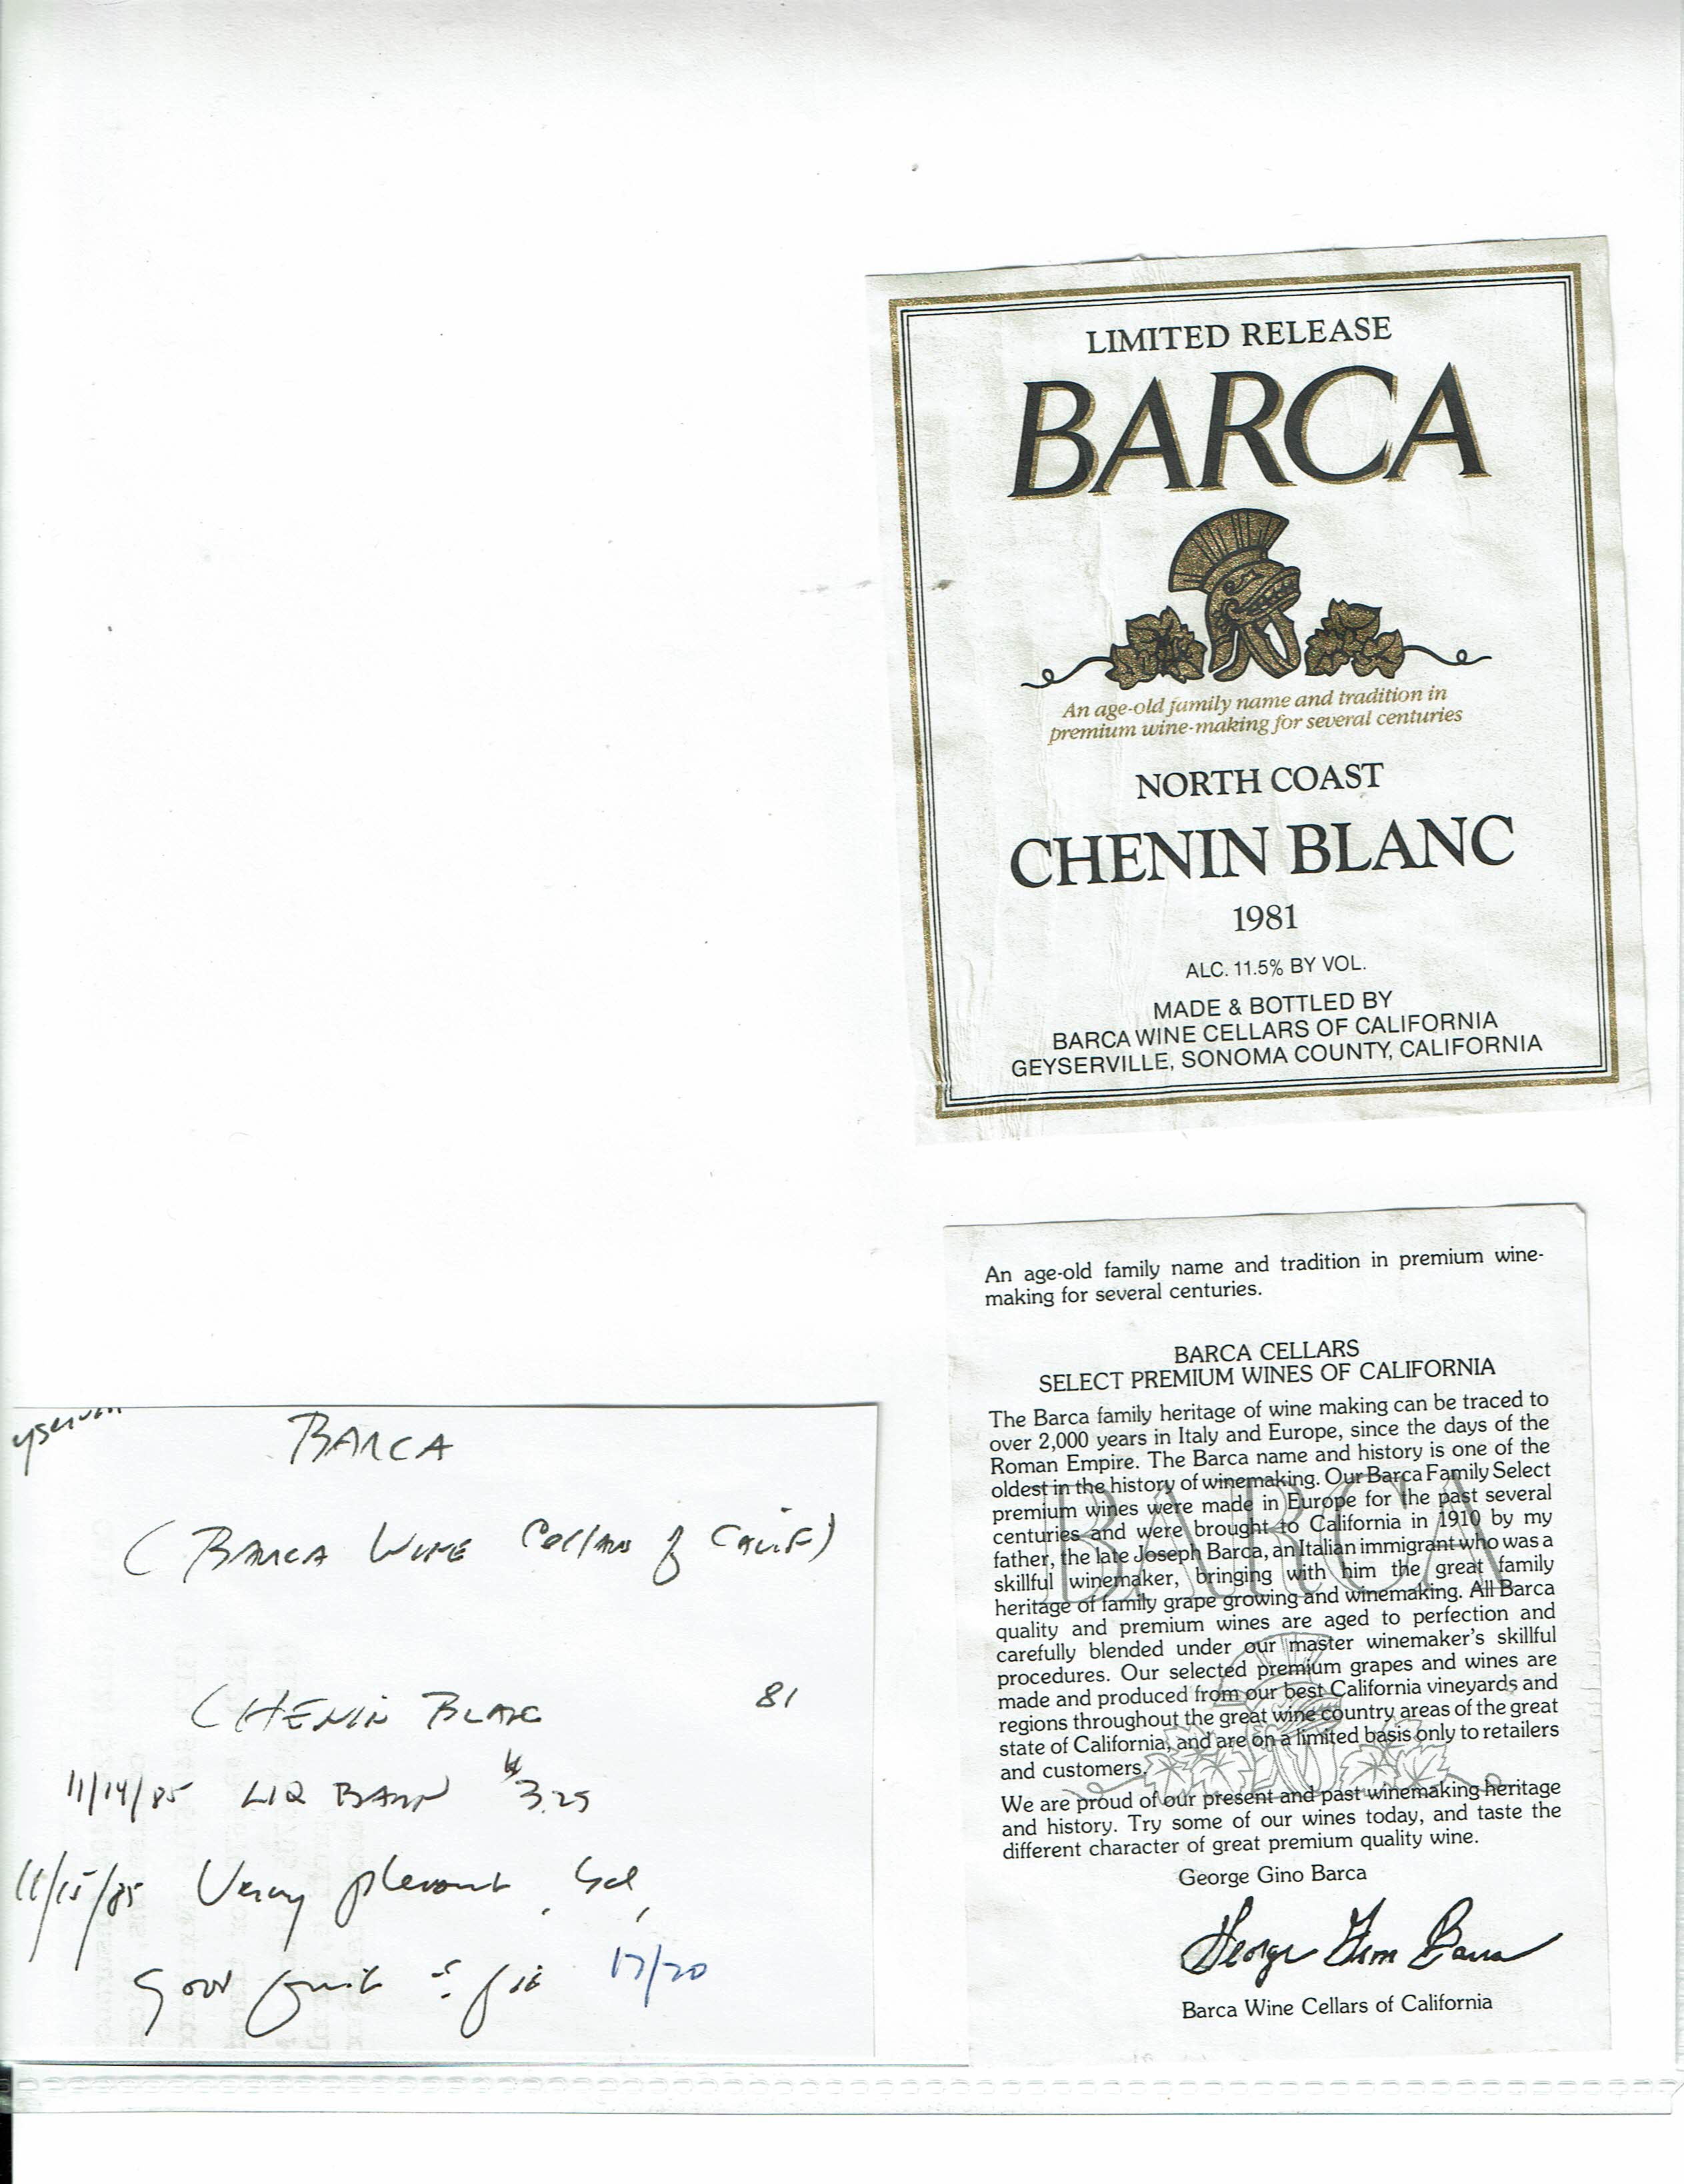 LIMITED RELEASE
BARCA
An age-old family name and tradition in
premium wine-making for several centuries
NORTH COAST
CHENIN BLANC
1981
ALC. 11.5% BY VOL.
MADE & BOTTLED BY
BARCA WINE CELLARS OF CALIFORNIA
GEYSERVILLE, SONOMA COUNTY, CALIFORNIA
An age-old family name and tradition in premium wine-
making for several centuries.
BARCA CELLARS
SELECT PREMIUM WINES OF CALIFORNIA
The Barca family heritage of wine making can be traced to
over 2,000 years in Italy and Europe, since the days of the
Roman Empire. The Barca name and history is one of the
oldest in the history of winemaking. Our Barca Family Select
premium wines were made in Europe for the past several
centuries and were brought to California in 1910 by my
father, the late Joseph Barca, an Italian immigrant who was a
skillful winemaker, bringing with him the great family
heritage of family grape growing and winemaking. All Barca
quality and premium wines are aged to perfection and
carefully blended under our master winemaker's skillful
procedures. Our selected premium grapes and wines are
made and produced from our best California vineyards and
regions throughout the great wine country areas of the great
state of California, and are on a limited basis only to retailers
and customers.
We are proud of our present and past winemaking heritage
and history. Try some of our wines today, and taste the
different character of great premium quality wine.
George Gino Barca
George Gino Barca
Barca Wine Cellars of California
BARCA
BARCA
(BARCA WINE Cellars of CALIF)
CHENIN BLANC 81
11/14/85 LIQ BARN $3.29
11/15/85 Very pleasant,
Good fruit 17/20